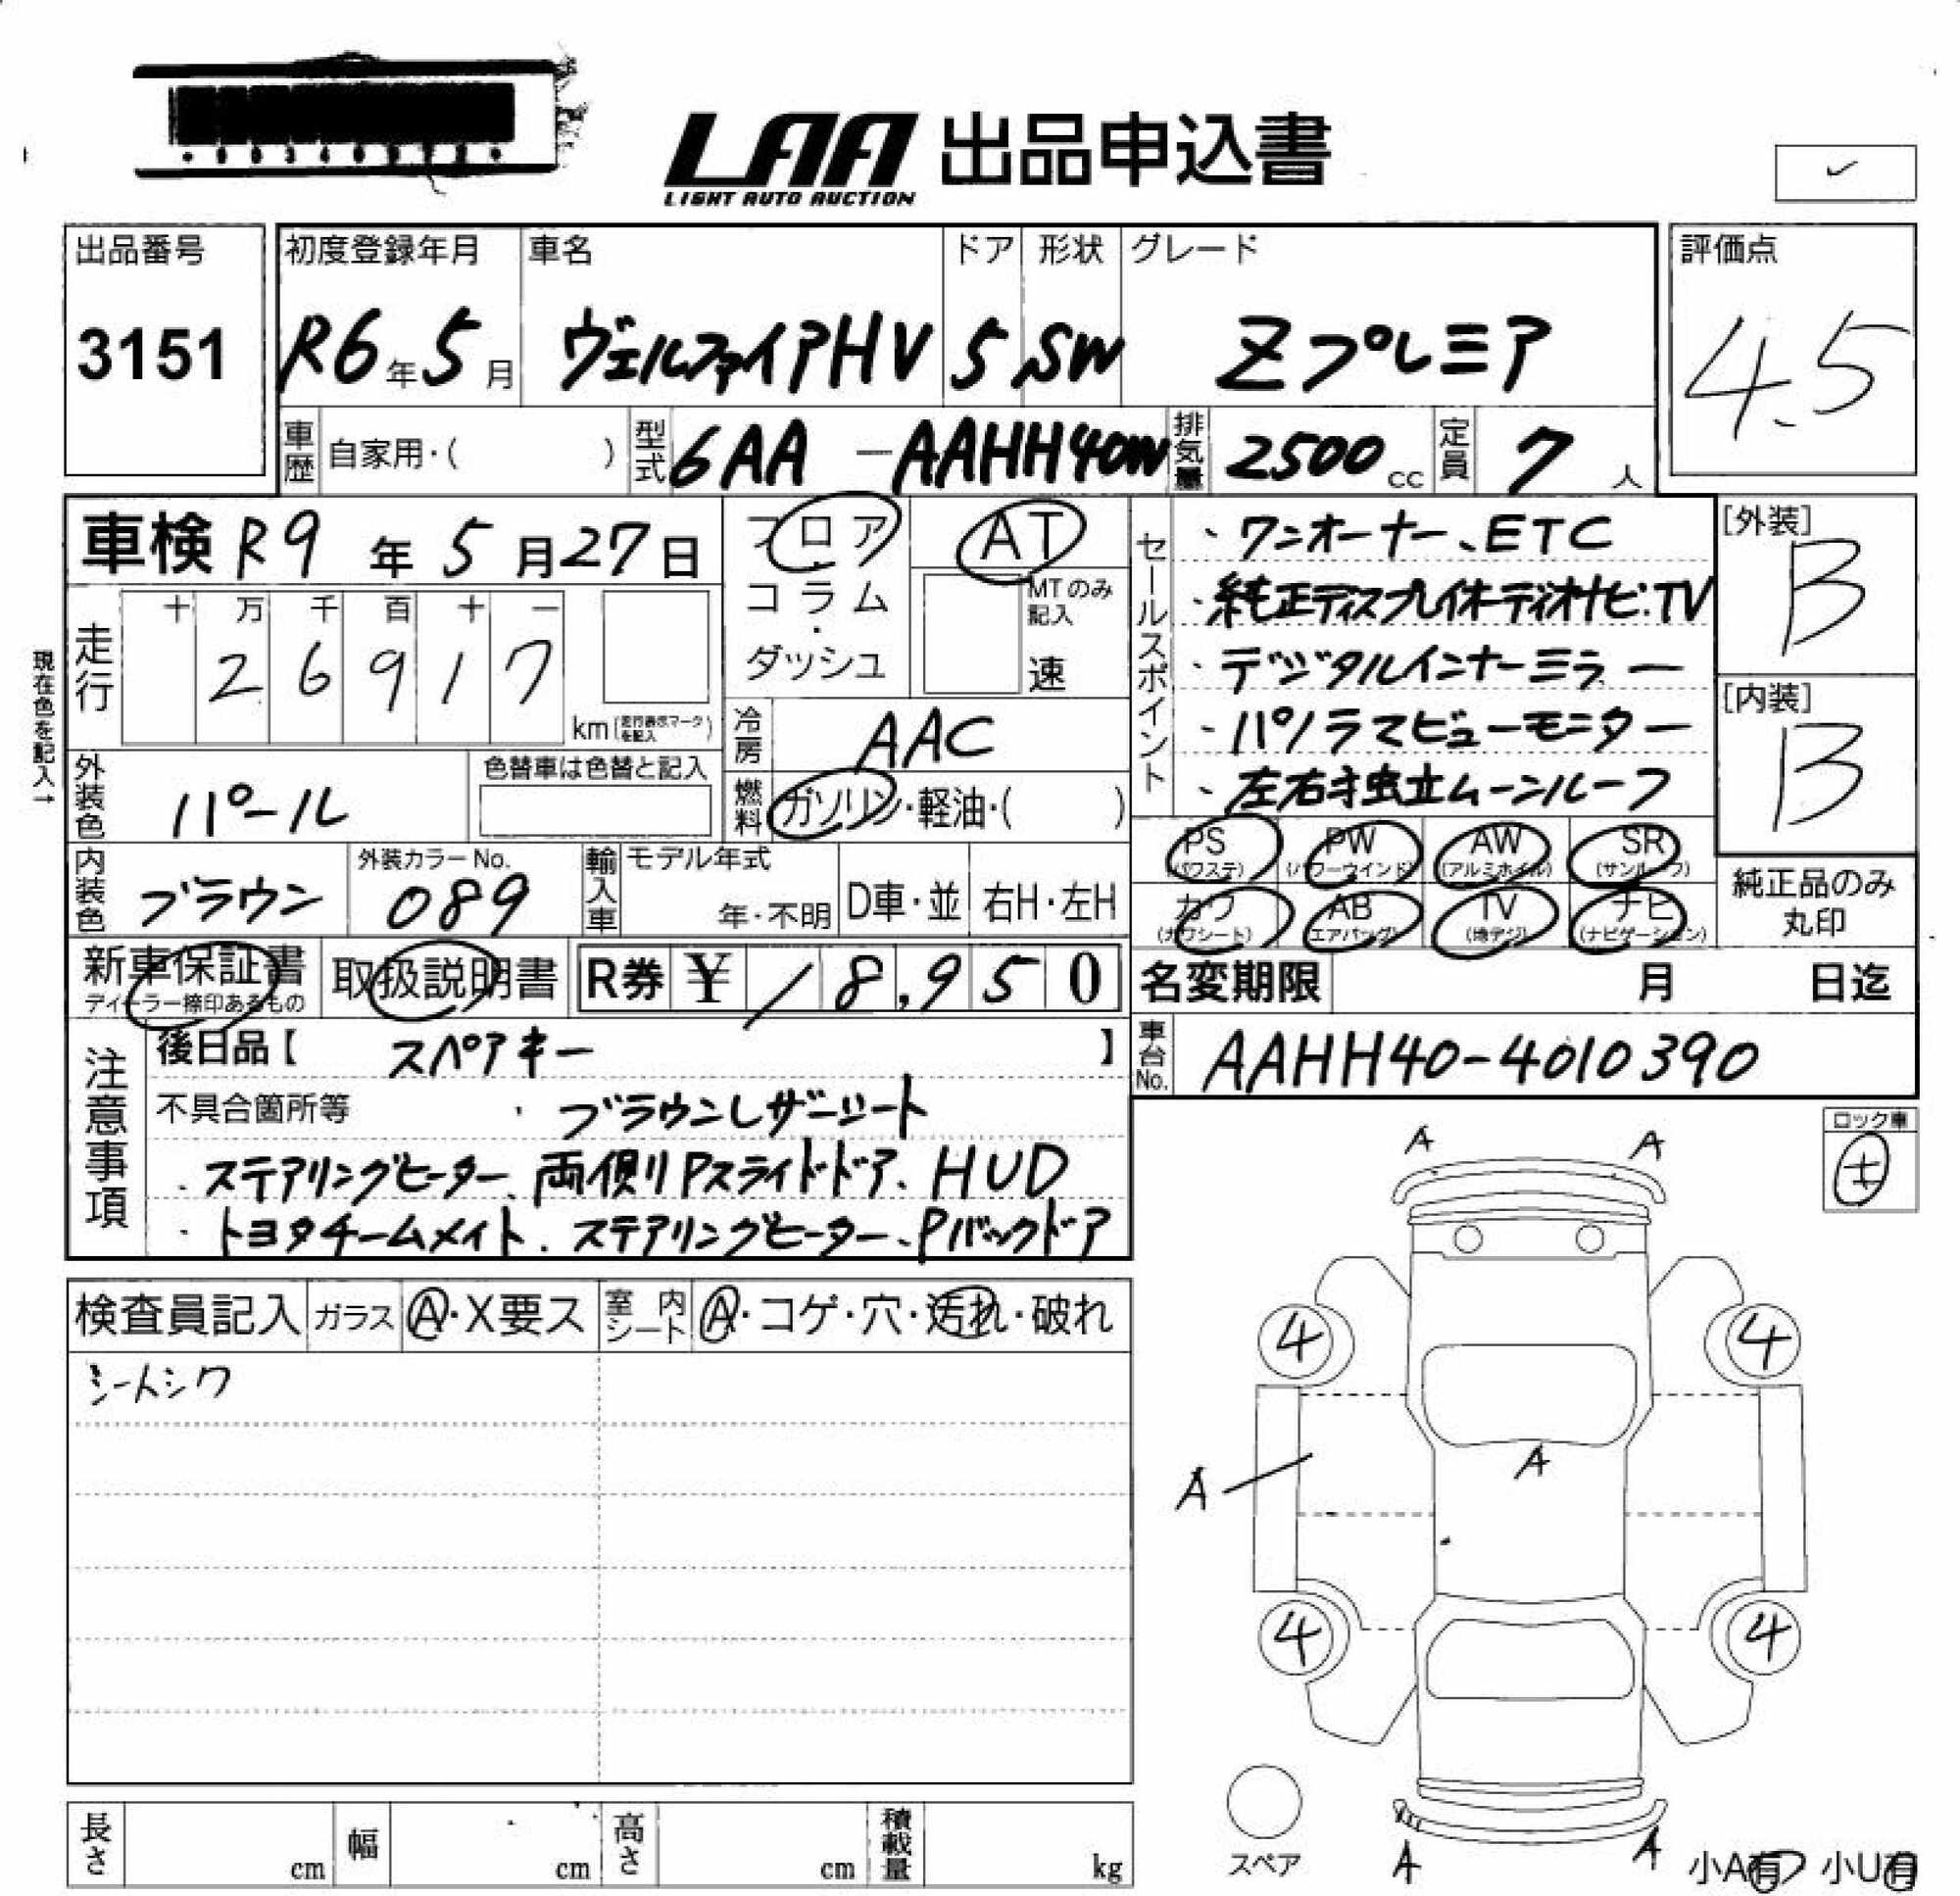 LAA 出品申込書
LIGHT AUTO AUCTION
出品番号 3151
初度登録年月 R6年5月
車名 ヴェルファイアHV
ドア 5
形状 SW
グレード Zプレミア
評価点 4.5
車歴 自家用・( )
型式 6AA-AAHH40W
排気量 2500cc
定員 7人
車検 R9年5月27日
フロア・コラム・ダッシュ
AT
MTのみ記入 速
現在色を記入→
走行 十万千百十一
26917 km(走行表示マークを記入)
冷房 AAC
外装色 パール
色替車は色替と記入
燃料 ガソリン・軽油・( )
セールスポイント
・ワンオーナー、ETC
・純正ディスプレイオーディオナビ・TV
・デジタルインナーミラー
・パノラマビューモニター
・左右独立ムーンルーフ
[外装] B
[内装] B
PS (パワステ) PW (パワーウインド) AW (アルミホイル) SR (サンルーフ)
カワ (カワシート) AB (エアバッグ) TV (地デジ) ナビ (ナビゲーション)
純正品のみ丸印
内装色 ブラウン
外装カラーNo. 089
輸入車 モデル年式 年・不明 D車・並 右H・左H
新車保証書 ディーラー捺印あるもの
取扱説明書
R券 ¥18,950
名変期限 月 日迄
車台No. AAHH40-4010390
注意事項
後日品【 スペアキー 】
不具合箇所等 ・ブラウンレザーシート
・ステアリングヒーター、両側Pスライドドア、HUD
・トヨタチームメイト、ステアリングヒーター、Pバックドア
ロック車
検査員記入 ガラス A・X要ス 室内シート A・コゲ・穴・汚れ・破れ
シートシワ
A A
4 4
A
A
4 4
スペア
A A
小A有 小U有
長さ cm 幅 cm 高さ cm 積載量 kg